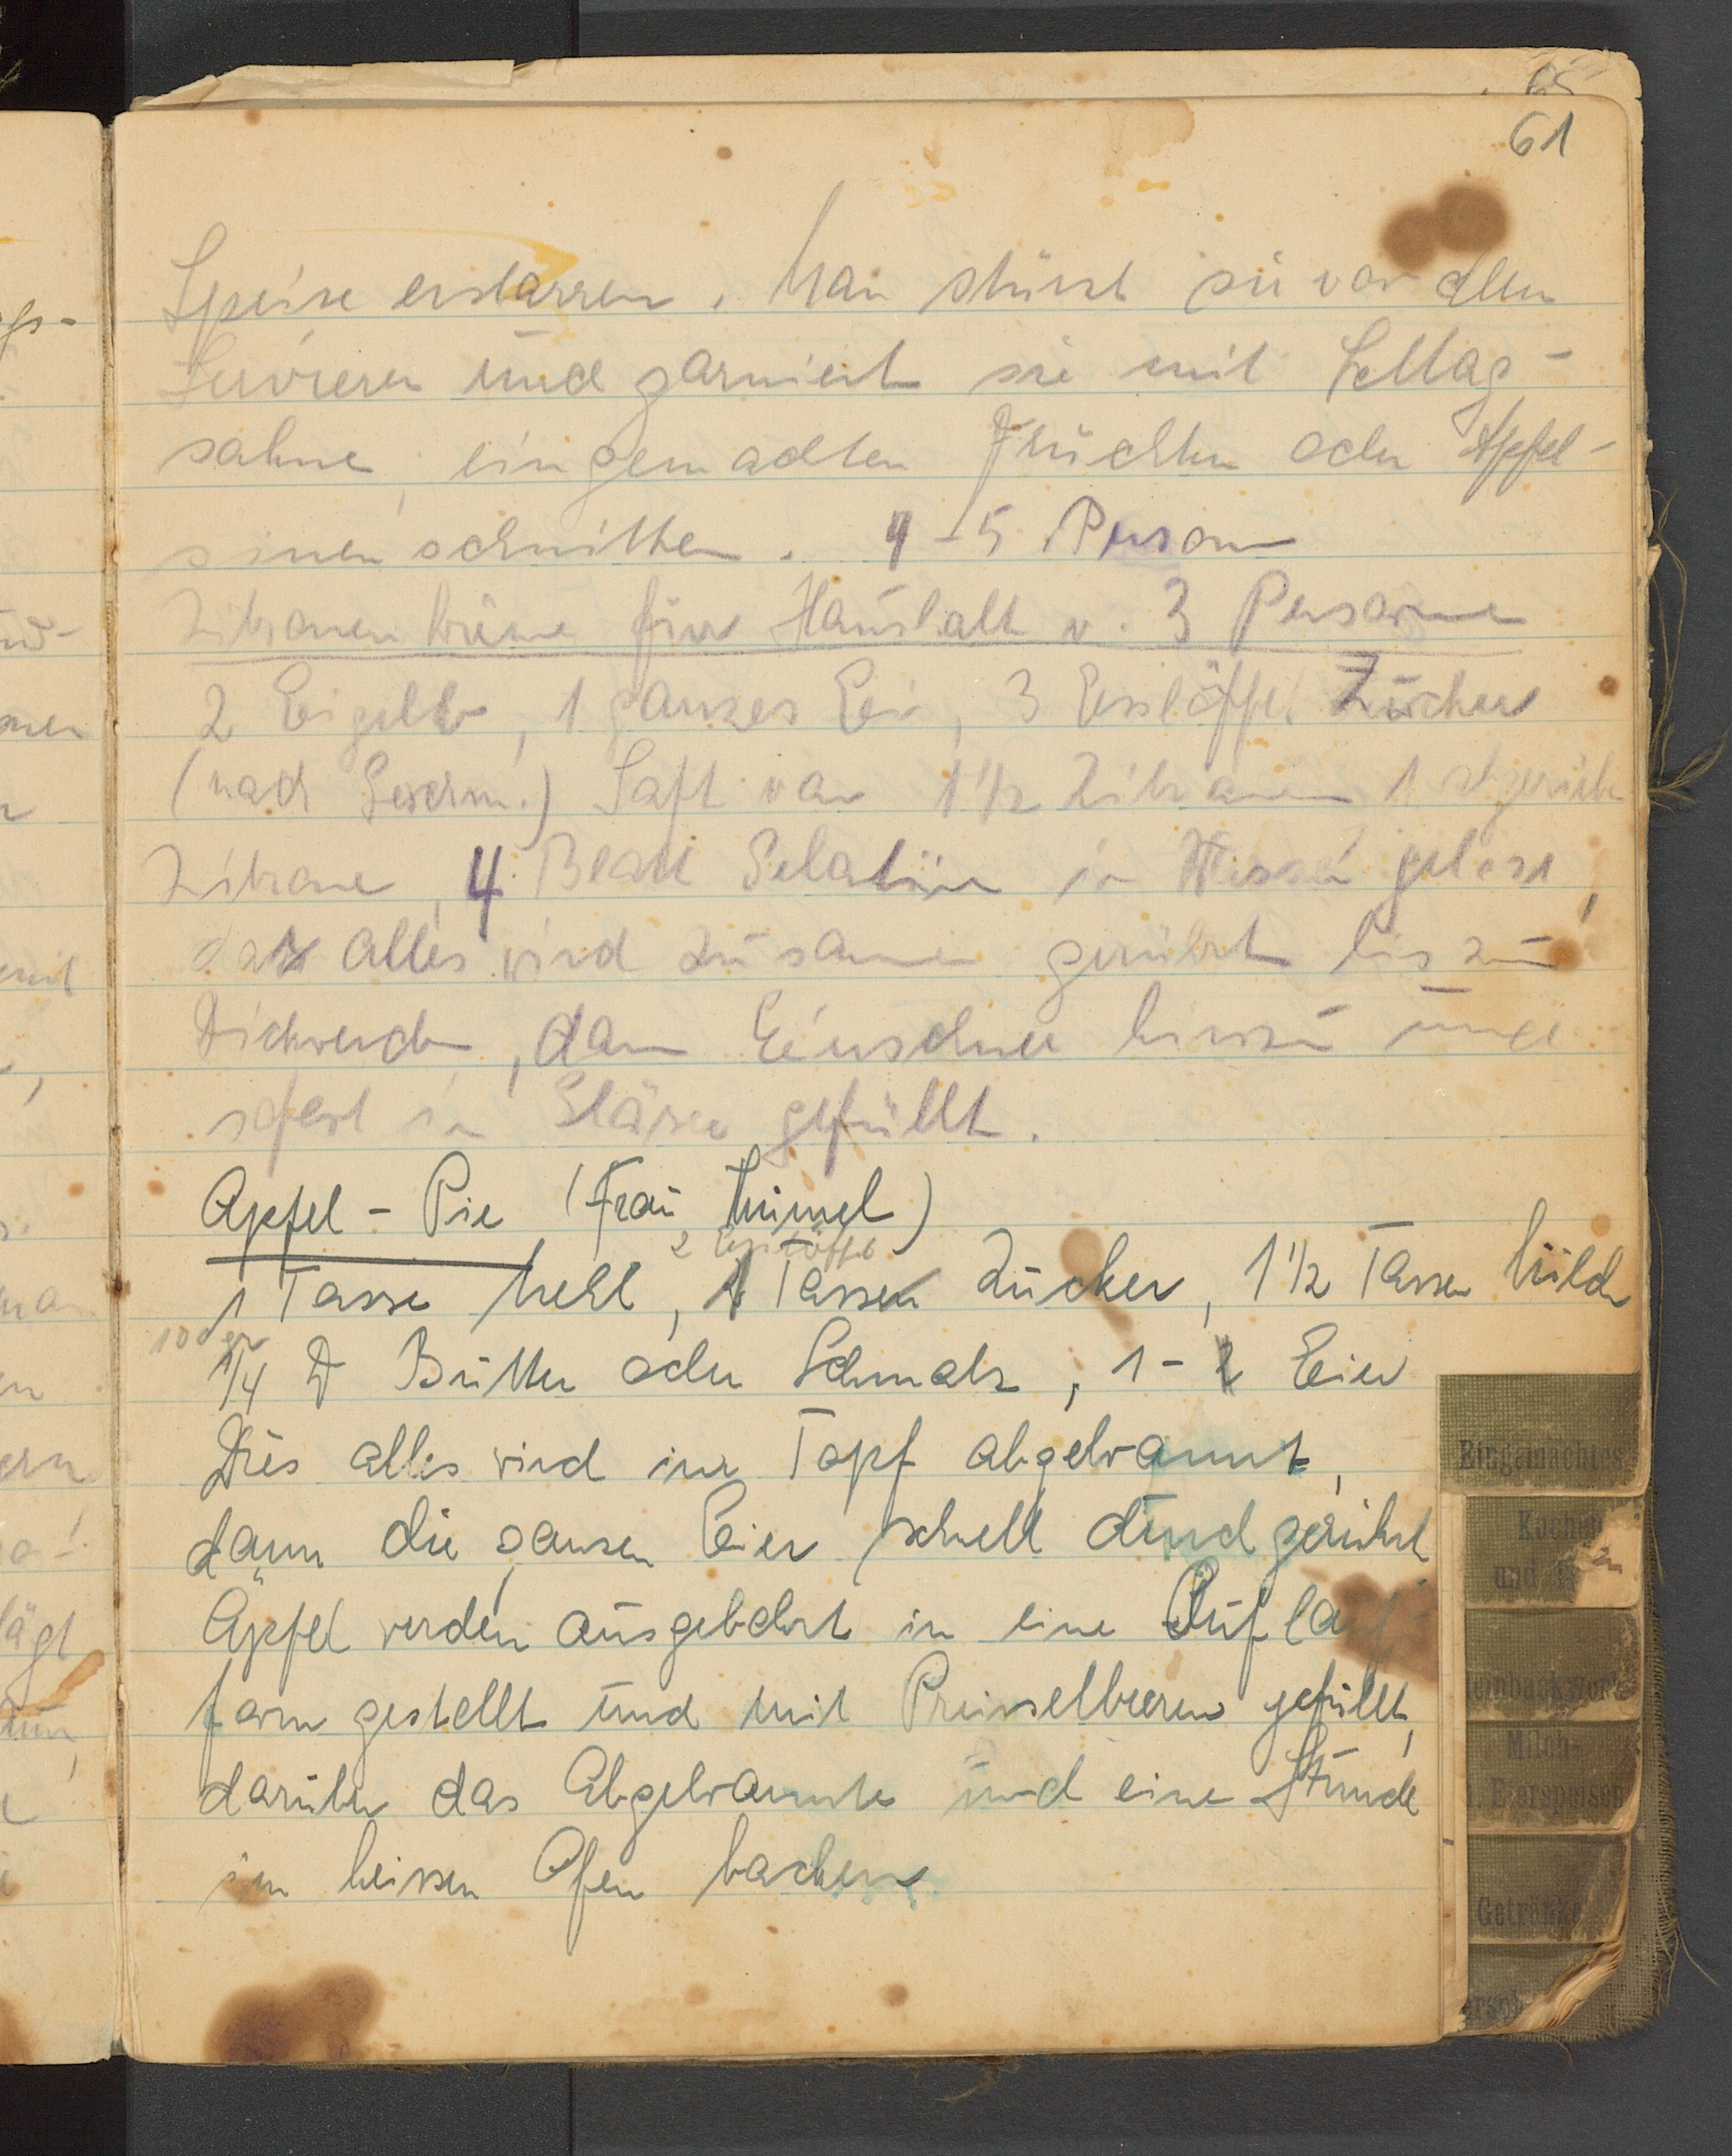 65
61
Speise erstarren. Man stürzt sie vor dem
Servieren und garniert sie mit Schlag-
sahne, eingemachten Früchten oder Apfel-
sinenschnitten. 4-5 Person
Zitronenkreme für Haushalt v. 3 Personen
2 Eigelb, 1 ganzes Ei, 3 Esslöffel Zucker
(nach Geschm.) Saft von 1 1/2 Zitronen 1 abgerieb
Zitrone, 4 Blatt Gelatine in Wasser gelöst,
das alles wird zusammen gerührt bis zum
Dickwerden, dann Eierschnee hinzu und
sofort in Gläser gefüllt.
Apfel - Pie (Frau
2 Esslöffel
1 Tasse Mehl, 1 Tassen Zucker, 1 1/2 Tassen Milch
100 gr
1/4 ℔ Butter oder Schmalz, 1 - 2 Eier
Dies alles wird im Topf abgebrannt,
dann die ganzen Eier schnell durchgerührt
Äpfel werden ausgebohrt in eine Auflauf-
form gestellt und mit Preisselbeeren gefüllt,
darüber das Abgebrannte und eine Stunde
im heissen Ofen backen
Eingemachtes
Kochen
und
Kleinbackwerk
Milch-
u. Eierspeisen
Getränke